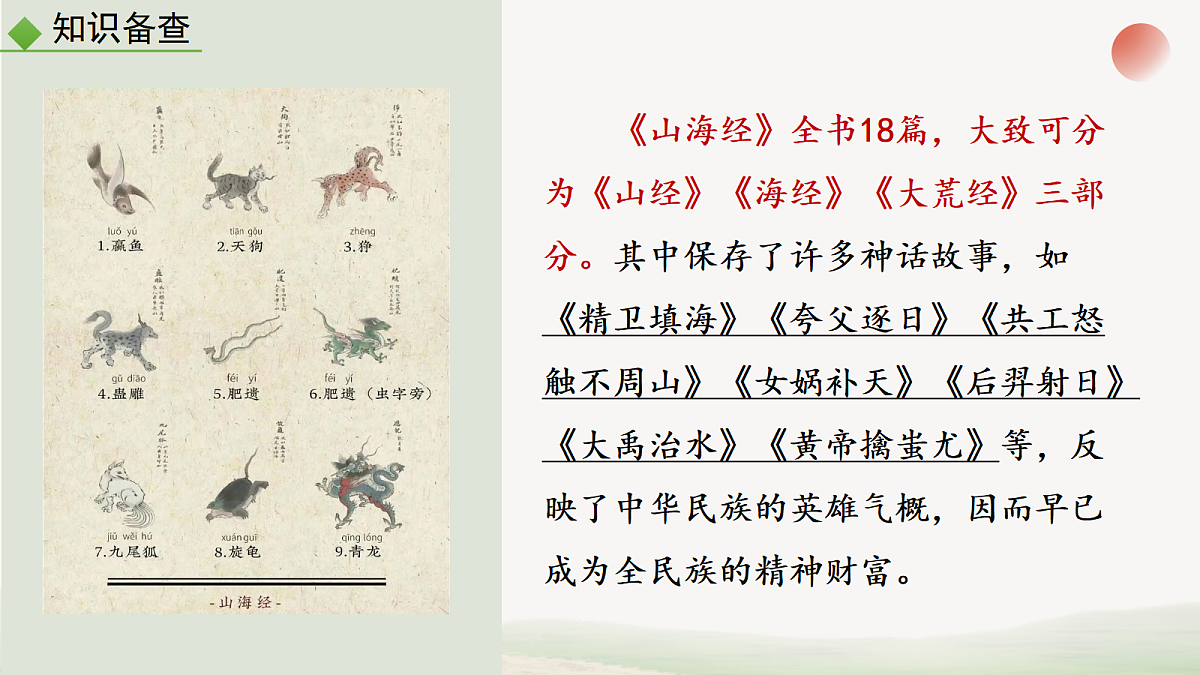 知识备查
luǒ yú
1.蠃鱼
tiān gǒu
2.天狗
zhēng
3.狰
gǔ diāo
4.蛊雕
féi yí
5.肥遗
féi yí
6.肥遗（虫字旁）
jiǔ wěi hú
7.九尾狐
xuán guī
8.旋龟
qīng lóng
9.青龙
-山海经-
《山海经》全书18篇，大致可分
为《山经》《海经》《大荒经》三部
分。其中保存了许多神话故事，如
《精卫填海》《夸父逐日》《共工怒
触不周山》《女娲补天》《后羿射日》
《大禹治水》《黄帝擒蚩尤》等，反
映了中华民族的英雄气概，因而早已
成为全民族的精神财富。